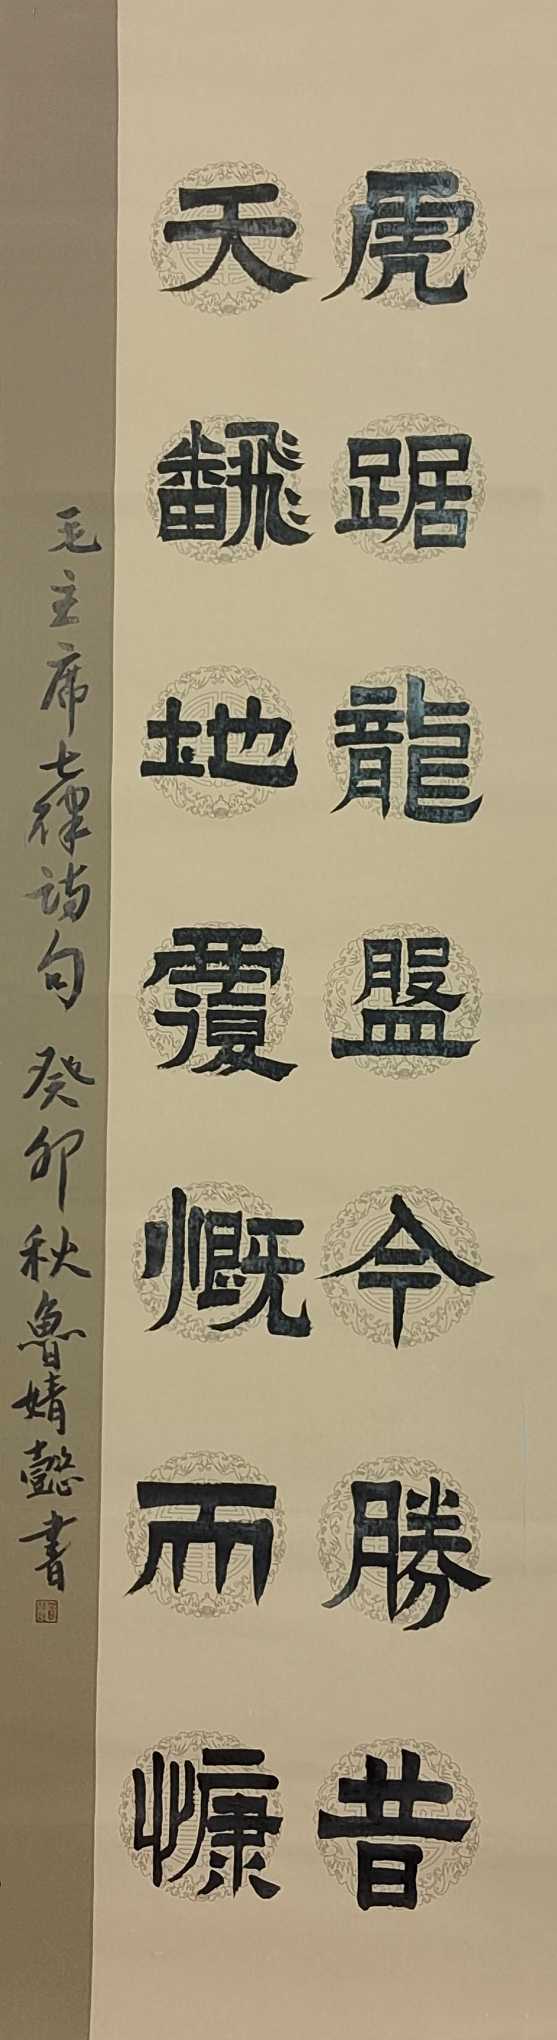 虎踞龍盤今勝昔
天飜地覆慨而慷
毛主席七律詩句 癸卯秋魯婧懿書